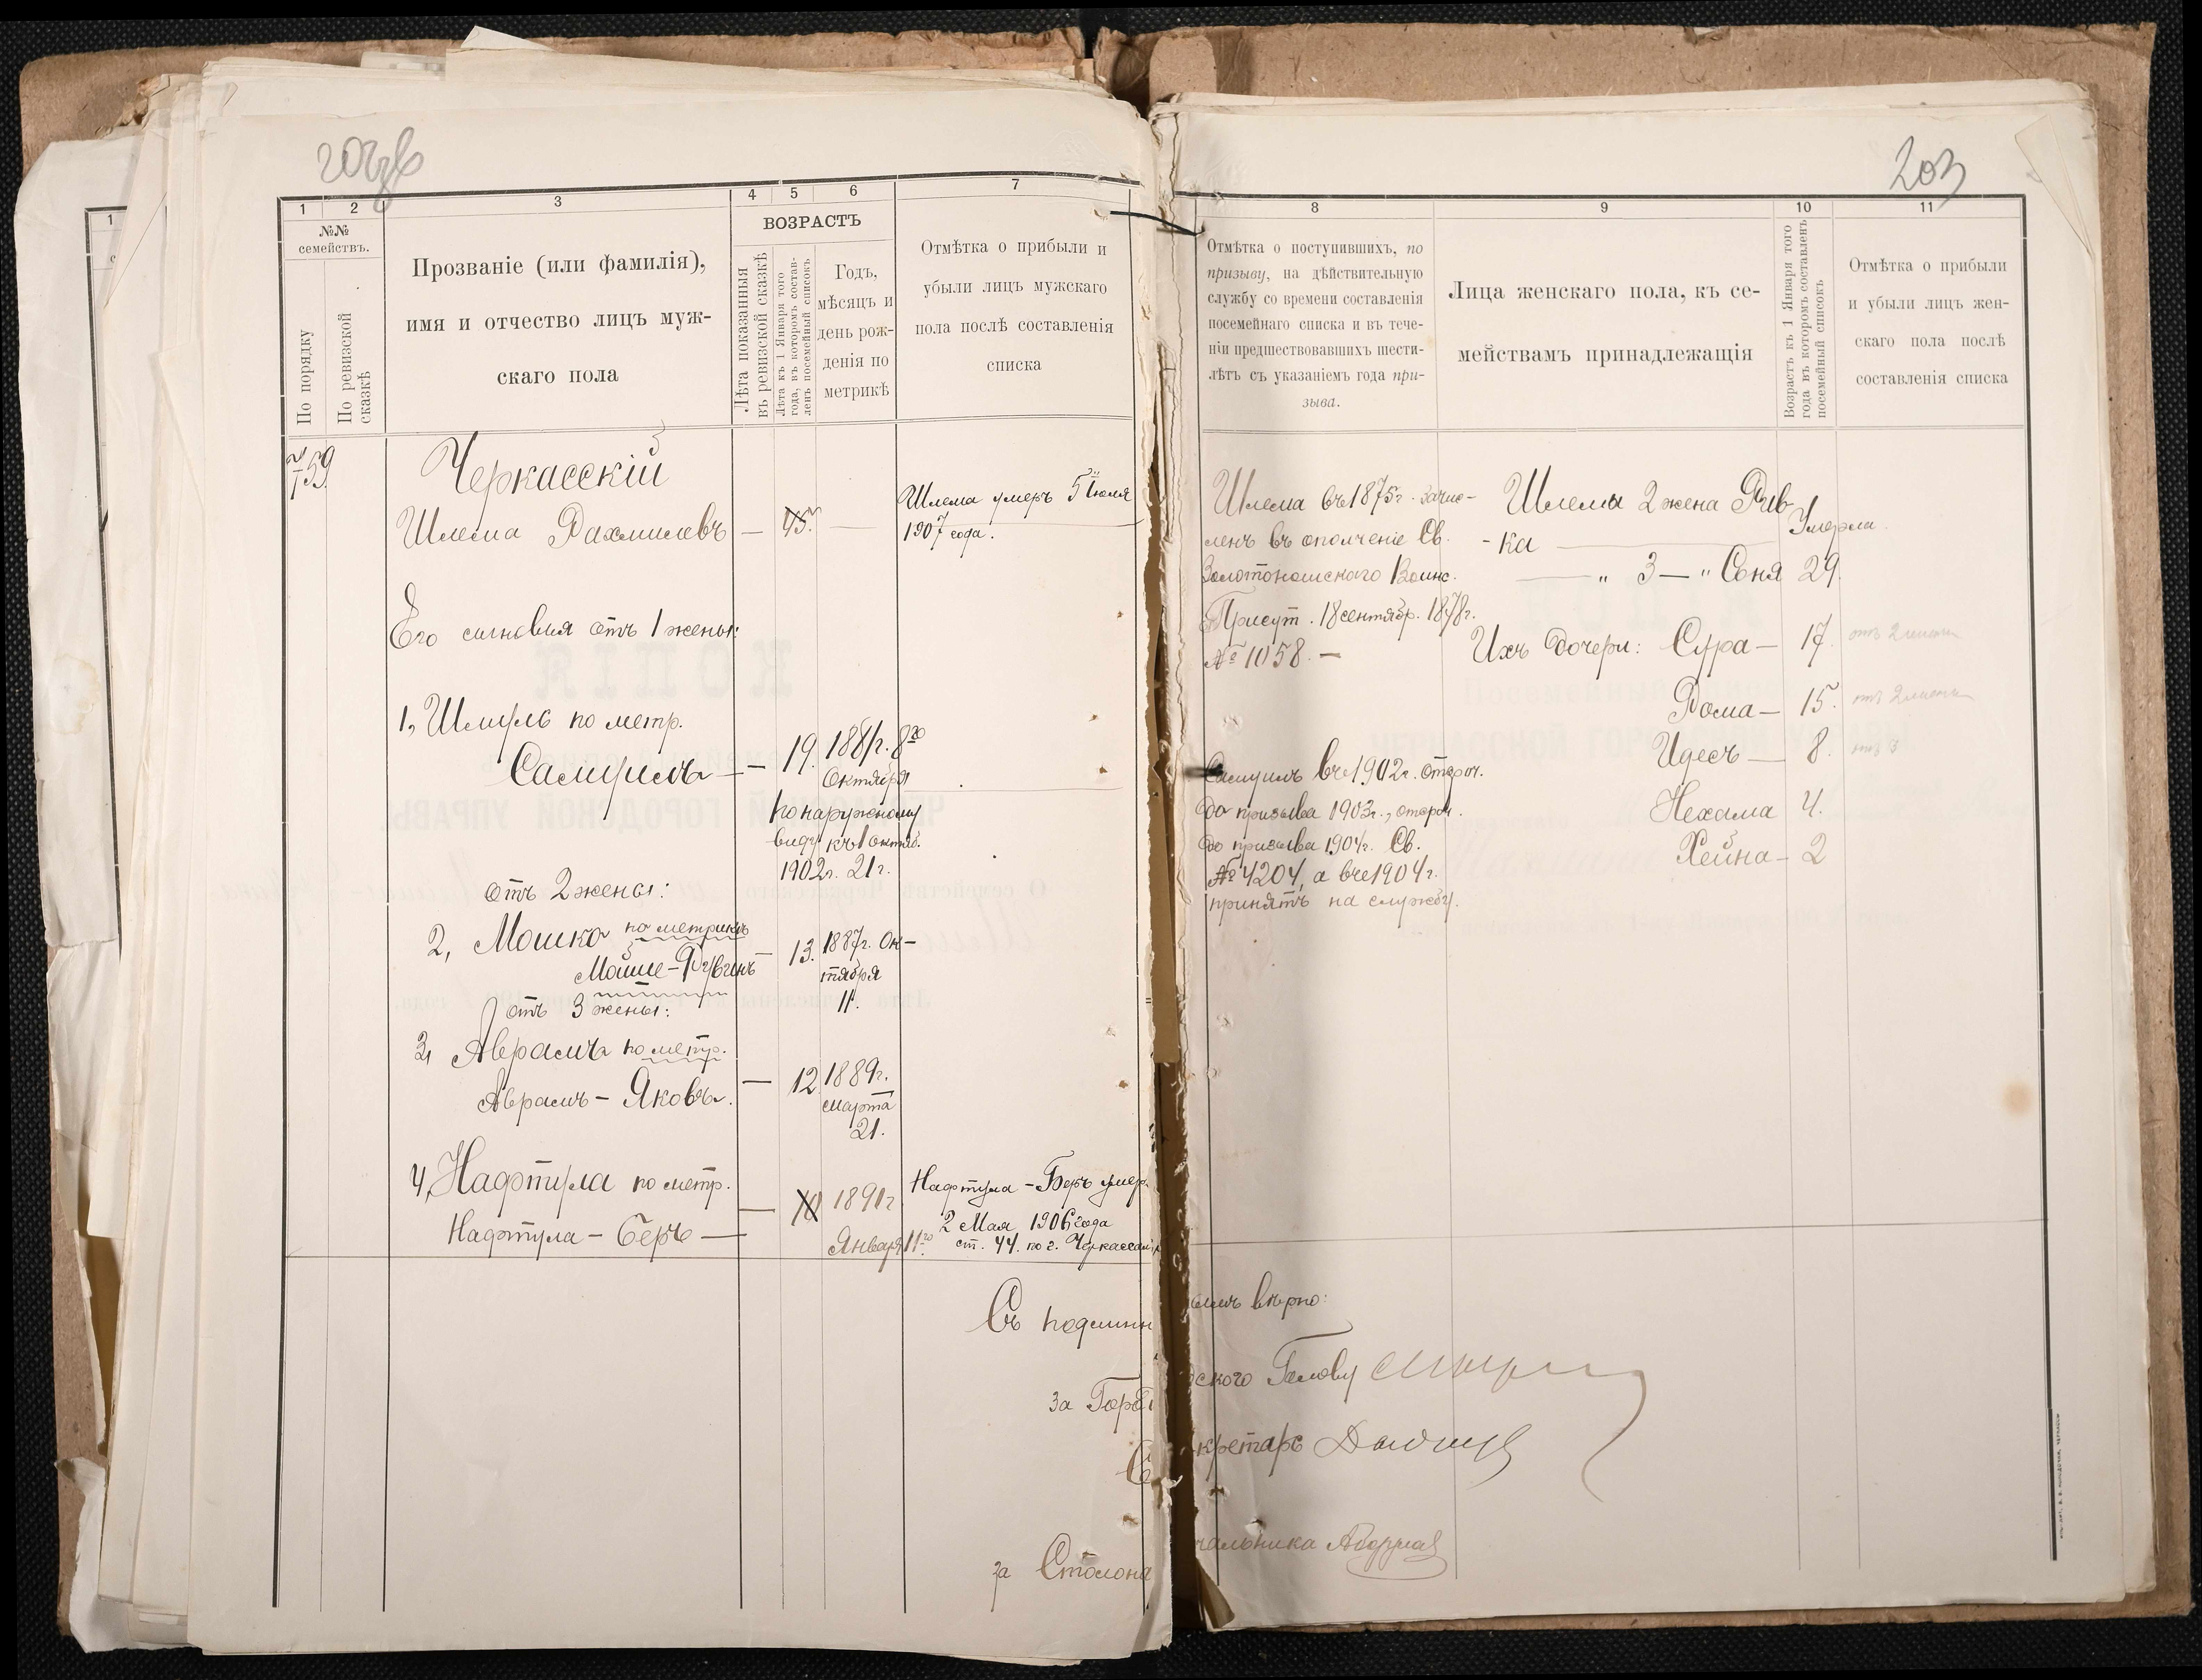 203
1 2 3 4 5 6 7
№№
семействъ.
По порядку
По ревизской сказкѣ
Прозваніе (или фамилія),
имя и отчество лицъ муж-
скаго пола
ВОЗРАСТЪ
Лѣта показанныя
въ ревизской сказкѣ
Лѣта къ 1 Января того
года, въ которомъ состав-
ленъ посемейный списокъ
Годъ,
мѣсяцъ и
день рож-
денія по
метрикѣ
Отмѣтка о прибыли и
убыли лицъ мужскаго
пола послѣ составленія
списка
759
Черкасскій
Шлема Рахмилевъ — 45.
Шлема умеръ 5 Іюля
1907 года.
Его сыновья отъ 1 жены:
1, Шмуль по метр.
Самуилъ — 19. 1881г. 8го
Октября
по наружному
виду къ 1 октяб.
1902г. 21г.
отъ 2 жены:
2, Мошко по метрикѣ
Мойше-Рувинъ — 13. 1887г. Ок-
тября
11.
отъ 3 жены:
3, Аврамъ по метр.
Аврамъ-Яковъ. — 12 1889г.
марта
21.
4, Нафтула по метр.
Нафтула-Беръ — 10 1891г
Января 11го
Нафтула-Беръ умер.
2 Мая 1906 года
ст. 44. по г. Черкассамъ
8 9 10 11
Отмѣтка о поступившихъ, по
призыву, на дѣйствительную
службу со времени составленія
посемейнаго списка и въ тече-
ніи предшествовавшихъ шести-
лѣтъ съ указаніемъ года при-
зыва.
Лица женскаго пола, къ се-
мействамъ принадлежащія
Возрастъ къ 1 Января того
года въ которомъ составленъ
посемейный списокъ
Отмѣтка о прибыли
и убыли лицъ жен-
скаго пола послѣ
составленія списка
Шлема въ 1875г. зачис-
ленъ въ ополченіе Св.
Золотоношскаго Воинс.
Присут. 18 сентябр. 1878г.
№ 1058. —
Самуилъ въ 1902г. отсроч.
до призыва 1903г., отсроч.
до призыва 1904г. Св.
№ 4204, а въ 1904г.
принятъ на службу.
Шлемы 2 жена Рив-
-ка — Умерла
— " 3 — " Соня 29.
Ихъ дочери: Сура — 17. отъ 2 жены
Рома — 15. отъ 2 жены
Идесъ — 8. отъ 3
Нехама 4.
Хейна — 2
Съ подлиннымъ вѣрно:
за Городского Голову
Секретарь
за Столоначальника